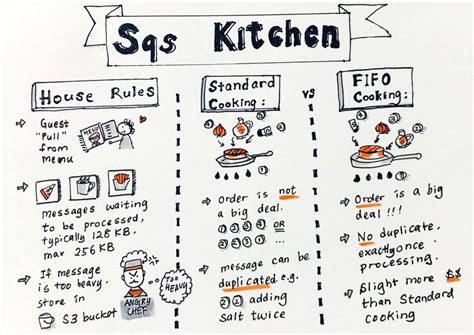 Sqs Kitchen
House Rules
Guest
"Pull"
from
menu
MENU
messages waiting
to be processed,
typically 128 KB.
max 256 KB
If message
is too heavy,
store in
S3 bucket
TOO
HEAVY
ANGRY
CHEF
Standard
Cooking:
Order is not
a big deal.
OR
message can be
duplicated e.g.
adding
salt twice
VS
FIFO
Cooking:
Order is a big
deal !!!
No duplicate,
exactly once
processing.
Slight more $$
than Standard
cooking